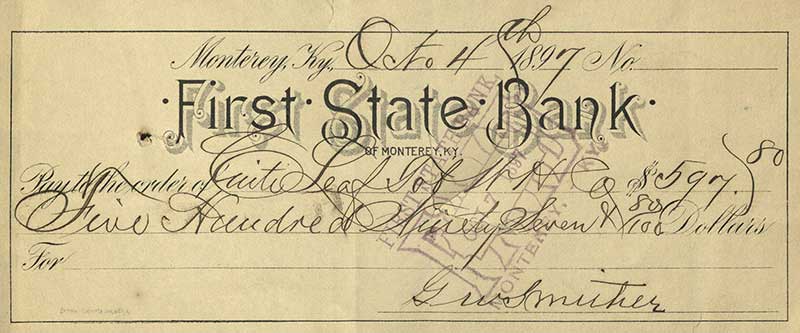 Monterey, Ky., Oto 4th 1897 No.
First State Bank
OF MONTEREY, KY.
Pay to the order of Leaf Tob W H Co $597.80
Five Hundred Ninety Seven & 80/100 Dollars
For
FIRST STATE BANK
PAID
MONTEREY, KY.
G W Smither